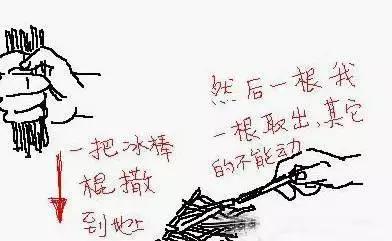 一把冰棒
棍撒
到地上
然后一根我
一根取出，其它
的不能动